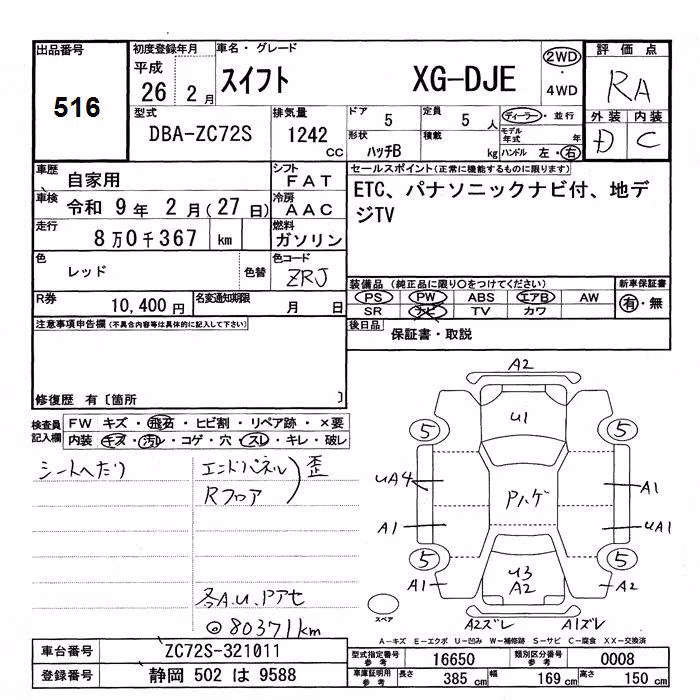 出品番号
516
初度登録年月
平成
26 2月
車名・グレード
スイフト XG-DJE
2WD
・
4WD
評価点
RA
外装 内装
D C
型式
DBA-ZC72S
排気量
1242
CC
ドア
5
定員
5 人
形状
ハッチB
積載
kg
ディーラー・並行
モデル年式 年
ハンドル 左・右
車歴
自家用
シフト
FAT
車検
令和 9年 2月(27日)
冷房
AAC
走行
8万0千367 km
燃料
ガソリン
色
レッド
色替
色コード
ZRJ
R券
10,400円
名変通知期限
月 日
セールスポイント(正常に機能するものに限ります)
ETC、パナソニックナビ付、地デ
ジTV
装備品(純正品に限り○をつけてください)
PS PW ABS エアB AW
SR ナビ TV カワ
新車保証書
有・無
後日品
保証書・取説
注意事項申告欄(不具合内容等は具体的に記入して下さい)
修復歴 有〔箇所 〕
検査員
記入欄
FW キズ・飛石・ヒビ割・リペア跡・×要
内装 キズ・汚レ・コゲ・穴・スレ・キレ・破レ
シートへたり
エンドパネル
Rフロア
歪
各A.U.Pアセ
◎80371km
A2
U1
5
5
UA4
A1
Pハゲ
A1
UA1
5
5
U3
A2
A1
A2
A2ズレ
A1ズレ
スペア
A-キズ E-エクボ U-凹み W-補修跡 S-サビ C-腐食 XX-交換済
車台番号
ZC72S-321011
登録番号
静岡 502 は 9588
型式指定番号
参考
16650
類別区分番号
参考
0008
車庫証明用
参考
長さ
385 cm
幅
169 cm
高さ
150 cm